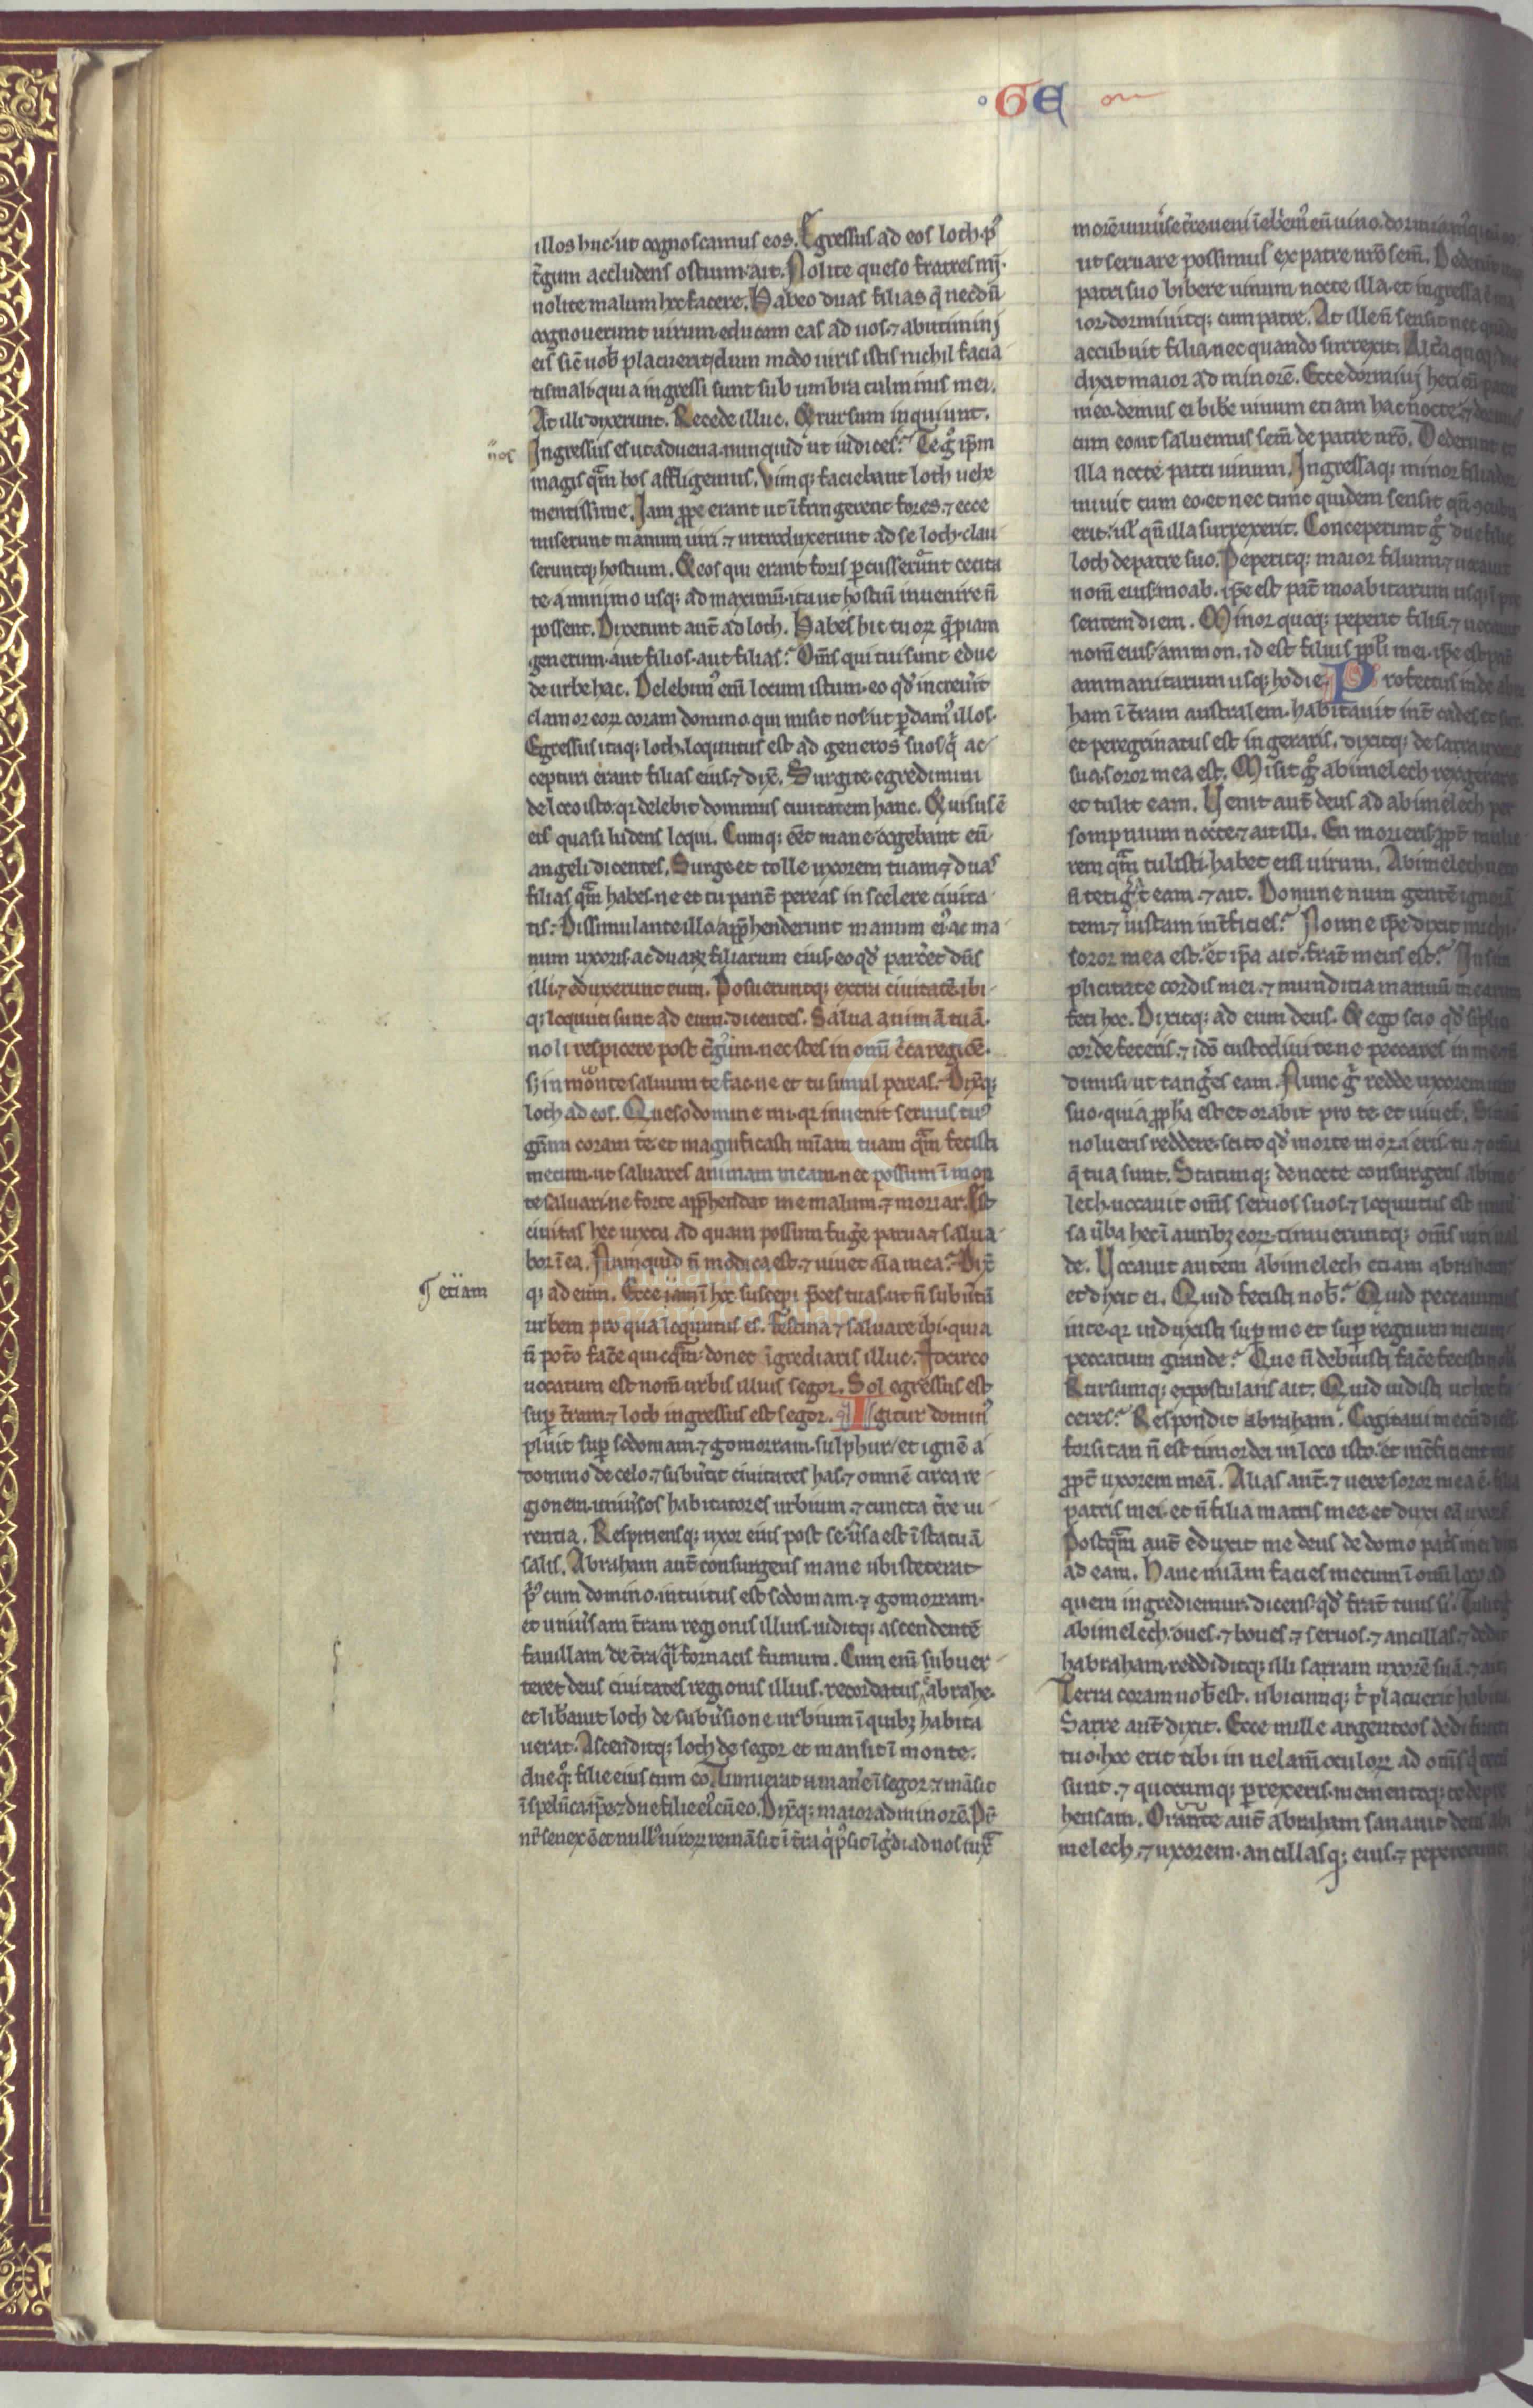 GE
illos huc ut cognoscamus eos. Egressus ad eos loth. pꝰ
t̃gum accludens ostium. ait. Nolite queso fratres mij.
nolite malum hoc facere. Habeo duas filias q̃ necdũ
cognouerunt uirum. educam eas ad uos. ⁊ abutiminj
eis sic̃ uob̃ placuerit / dum modo uiris istis nichil facia
tis mali. quia ingressi sunt sub umbra culminis mei.
At illi dixerunt. Recede illuc. Et rursum inquiunt.
Ingressus es ut aduena. nunquid ut iudices? Te gͦ ip̃m
nos
magis qͣm hos affligemus. Vimq; faciebant loth uehe
mentissime. Iam ꝓpe erant ut ĩfringerent fores. ⁊ ecce
miserunt manum uiri. ⁊ introduxerunt ad se loth. clau
seruntq; hostium. Et eos qui erant foris ꝑcusserunt cecita
te. a minimo usq; ad maximũ. ita ut hostiũ inuenire ñ
possent. Dixerunt aut̃ ad loth. Habes hic tuoꝝ q̃mpiam
generum. aut filios. aut filias? Om̃s qui tui sunt educ
de urbe hac. Delebimꝰ em̃ locum istum. eo qď increuͥt
clamor eoꝝ coram domino. qui misit nos. ut ꝑdamꝰ illos.
Egressus itaq; loth. loquutus est ad generos suos qͥ ac
cepturi erant filias eius. ⁊ dix̃. Surgite. egredimini
de loco isto. qr delebit dominus ciuitatem hanc. Et uisus ẽ
eis quasi ludens loqui. Cumq; eẽt mane. cogebant eũ
angeli dicentes. Surge. et tolle uxorem tuam. ⁊ duas
filias qͣm habes. ne et tu parit̃ pereas in scelere ciuita
tis. Dissimulante illo / app̃henderunt manum eiꝰ. ac ma
num uxoris. ac duaꝝ filiarum eius. eo qď parc̃et dñs
illi. ⁊ eduxerunt eum. Posueruntq; extra ciuitatẽ. ibi
q; loquuti sunt ad eum. dicentes. Salua animã tuã.
noli respicere post t̃gum. nec stes in omĩ c̃ca regiõe.
sꝫ in monte saluum te fac. ne et tu simul pereas. Dixͥtq;
loth ad eos. Queso domine mi. qr inuenit seruus tuꝰ
gr̃am coram te. et magnificasti mĩam tuam qͣm fecisti
mecum. ut saluares animam meam. nec possum ĩ mon
te saluari. ne forte app̃hendat me malum. ⁊ moriar. Est
ciuitas hec iuxta ad quam possum fug̃e parua. ⁊ salua
bor ĩ ea. Numquid ñ modica est. ⁊ uiuet aĩa mea? Dix̃
q; ad eum. Ecce iam ĩ hoc suscepi p̃ces tuas. ut ñ subũtã
etiam
urbem pro qua loquutus es. Festina ⁊ saluare ibi. quia
ñ poto face quicqͣm. donec ĩgrediaris illuc. Idcirco
uocatum est nom̃ urbis illius segor. Sol egressus est
suꝑ t̃ram. ⁊ loth ingressus est segor. Igitur dominꝰ
pluit suꝑ sodomam. ⁊ gomorram. sulphur / et ignẽ a
domino de celo. ⁊ subũtit ciuitates has. ⁊ omnẽ circa re
gionem. uniũsos habitatores urbium. ⁊ cuncta t̃re ui
rentia. Respiciensq; uxor eius post se. ũsa est ĩ statuã
salis. Abraham aut̃ consurgens mane ubi steterat
pͥꝰ cum domino. intuitus est sodomam. ⁊ gomorram.
et uniũsam t̃ram regionis illius. uiditq; ascendentẽ
fauillam de t̃ra qͣsi fornacis fumum. Cum em̃ subuer
teret deus ciuitates regionis illius. recordatus abrahe.
et lib̃auit loth de subũsione urbium ĩ quibꝫ habita
uerat. Ascenditq; loth de segor et mansit ĩ monte.
dueq; filie eius cum eo. Timuerat manẽ ĩ segor. ⁊ mãsit
ĩ spelũca ip̃e. ⁊ due filie eiꝰ cũ eo. Dix̃q; maior ad minorẽ. Pr̃
nr̃ senex ẽ. et nullꝰ uiroꝝ remãsit ĩ t̃ra qͥ pͦssit ĩg̃di ad nos iuxͣ
morẽ uniũse t̃re. ueni ĩeb̃emꝰ eũ uino. dormiamꝰq;
ut seruare possimus ex patre nr̃o sem̃. Dederũt
patri suo bibere uinum nocte illa. et ingressa ẽ ma
ior. dormiuitq; cum patre. At ille ñ sensit nec
accubuit filia. nec quando surrexit. Alt̃a quoq; die
dixit maior ad minorẽ. Ecce dormiuj heri cũ patre
meo. demus ei bib̃e uinum etiam hac nocte. ⁊
cum eo. ut saluemus sem̃ de patre nr̃o. Dederunt
illa nocte patri uinum. Ingressaq; minor filia dor
miuit cum eo. et nec tunc quidem sensit qñ ꝯcubu
erit. ul̃ qñ illa surrexerit. Conceperunt gͦ due filie
loth de patre suo. Peperitq; maior filium. ⁊ uocauit
nom̃ eius moab. ip̃e est pat̃ moabitarum usq; ĩ pre
sentem diem. Minor quoq; peperit filiũ. ⁊ uocauit
nom̃ eius ammon. id est filius ppl̃i mei. ip̃e est
ammanitarum usq; hodie. Profectus inde abra
ham ĩ t̃ram australem. habitauit int̃ cades et sur.
et peregrinatus est in geraris. dixitq; de sarra uxore
sua. soror mea est. Misit gͦ abimelech rex gerare
et tulit eam. Uenit aut̃ deus ad abimelech per
sompnium nocte. ⁊ ait illi. En morieris ꝓpt̃ mulie
rem qͣm tulisti. habet em̃ uirum. Abimelech uero
ñ tetigͣt eam. ⁊ ait. Domine num gentẽ ignorã
tem. ⁊ iustam int̃ficies? Nonne ip̃e dixit michi
soror mea est. et ip̃a ait. frat̃ meus est? In sim
plicitate cordis mei. ⁊ munditia manuũ mearum
feci hoc. Dixitq; ad eum deus. Et ego scio qď simplici
corde feceris. ⁊ idõ custodiui te ne peccares in me. nõ
dimisi ut tang̃es eam. Nunc gͦ redde uxorem uiro
suo. quia ꝓph̃a est. et orabit pro te et uiues. Si aut̃
nolueris reddere. scito qď morte morieris. tu. ⁊ om̃ia
q̃ tua sunt. Statimq; de nocte consurgens abime
lech. uocauit om̃s seruos suos. ⁊ loquutus est
ũba hec ĩ auribꝫ eoꝝ. timueruntq; om̃s uiri ual
de. Uocauit autem abimelech etiam abraham
et dixit ei. Quid fecisti nob̃? Quid peccauimus
in te. qr induxisti suꝑ me et suꝑ regnum meum
peccatum grande? Que ñ debuisti face fecisti
Rursumq; expostulans ait. Quid uidisti ut hoc fa
ceres? Respondit abraham. Cogitaui mecũ dicẽs
forsitan ñ est timor dei in loco isto. et int̃ficient me
ꝓpt̃ uxorem meã. Alias aut̃. ⁊ uere soror mea ẽ. filia
patris mei. et ñ filia matris mee. et duxi eã uxorẽ
Postqͣm aut̃ eduxit me deus de domo patͥs mei. dixi
ad eam. Hanc mĩam facies mecum ĩ om̃i loco ad
quem ingrediemur. dicens. qď frat̃ tuus sĩ. Tulit gͦ
abimelech. oues. ⁊ boues. ⁊ seruos. ⁊ ancillas. ⁊ dedit
habraham. reddiditq; illi sarram uxorẽ suã. ⁊ ait
Terra coram uob̃ est. ubicumq; t̃ placuerit habita.
Sarre aut̃ dixit. Ecce mille argenteos dedi fratri
tuo. hoc erit tibi in uelam̃ oculoꝝ ad om̃s qͥ tecũ
sunt. ⁊ quocumq; ꝑrexeris. mementoq; te depre
hensam. Orante aut̃ abraham sanauit deus abi
melech. ⁊ uxorem. ancillasq; eius. ⁊ pepererunt
FLG
Fundación
Lázaro Galdiano